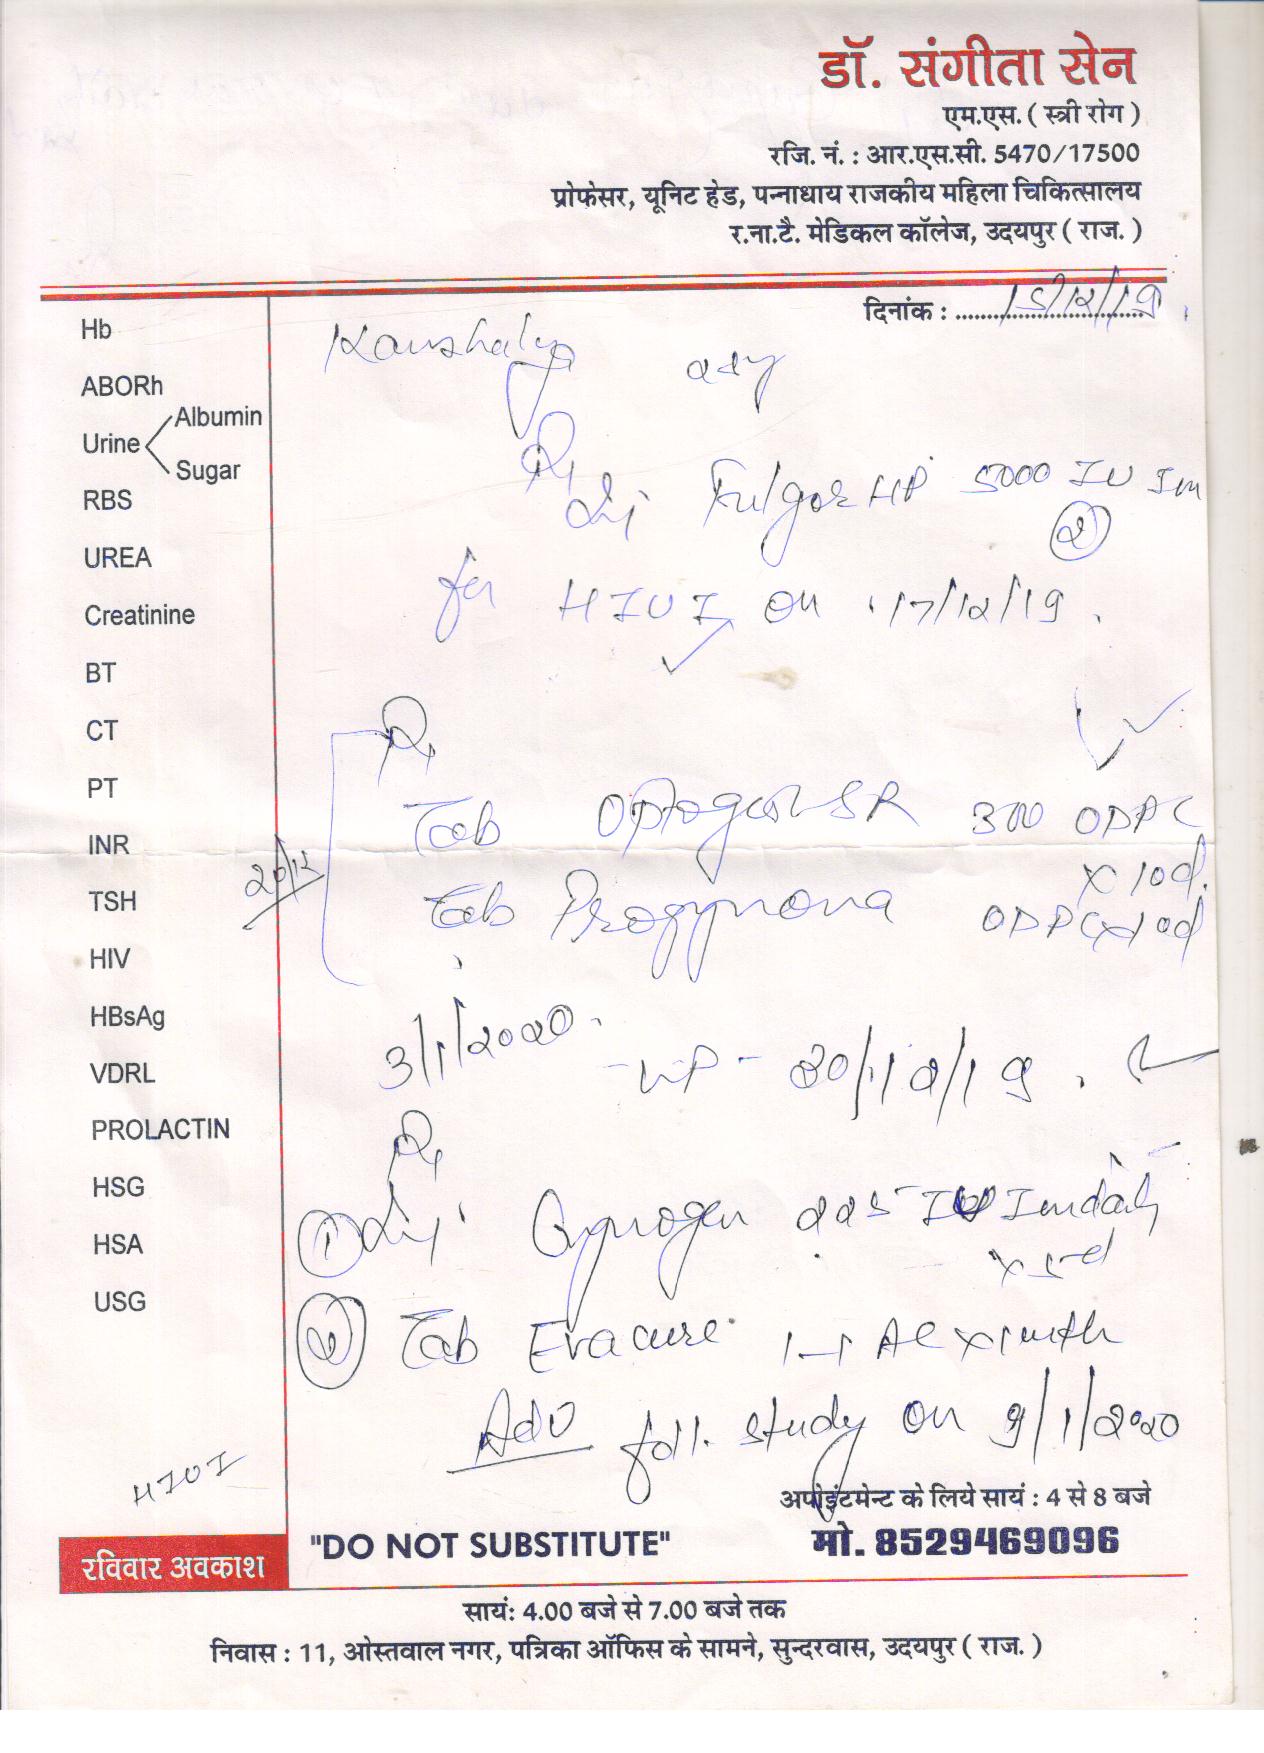 डॉ. संगीता सेन
एम.एस. ( स्त्री रोग )
रजि. नं. : आर.एस.सी. 5470/17500
प्रोफेसर, यूनिट हेड, पन्नाधाय राजकीय महिला चिकित्सालय
र.ना.टै. मेडिकल कॉलेज, उदयपुर ( राज. )
दिनांक : 15/12/19
Hb
ABORh
Urine
Albumin
Sugar
RBS
UREA
Creatinine
BT
CT
PT
INR
TSH
HIV
HBsAg
VDRL
PROLACTIN
HSG
HSA
USG
HIUI
Kaushalya
Inj Fulgor HP 5000 IU Im
(2)
for HIUI on 17/12/19.
20/12
Tab SR 300 ODPC
x 10d.
Tab Progynova ODPC x 10d
3/1/2020.
- 30/12/19.
① Inj. Gynogen 225 Im daily
x 5d
② Tab Evacure 1-1 x 1 mth
Adv foll. study on 9/1/2020
अपोइंटमेन्ट के लिये सायं : 4 से 8 बजे
"DO NOT SUBSTITUTE" मो. 8529469096
रविवार अवकाश
सायं: 4.00 बजे से 7.00 बजे तक
निवास : 11, ओस्तवाल नगर, पत्रिका ऑफिस के सामने, सुन्दरवास, उदयपुर ( राज. )